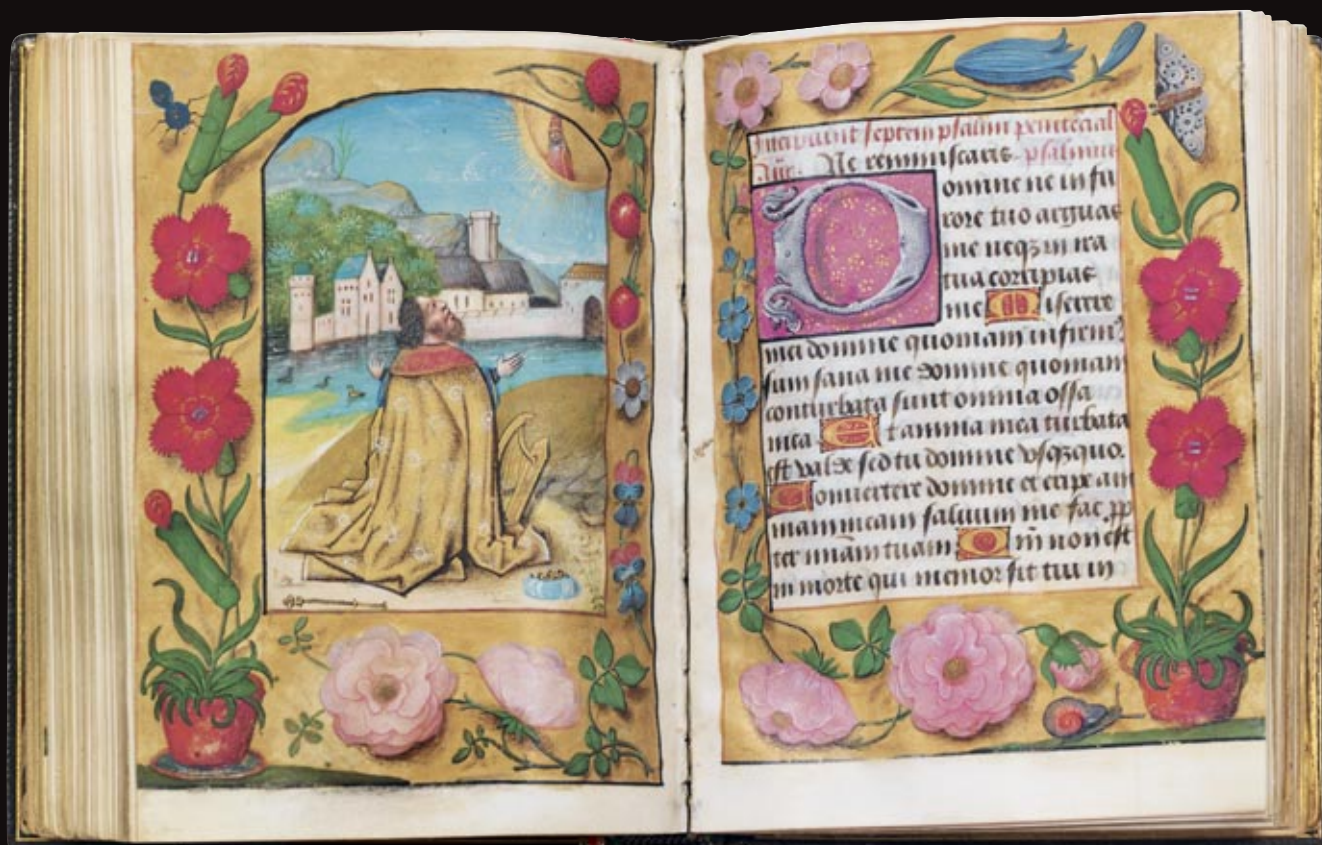 Incipiunt septem psalmi penitēcial
Añ. Ne reminiscaris. psalmus
Domine ne in fu
rore tuo arguas
me neqz in ira
tua corripias
me Miserere
mei domine quoniam infirmꝰ
sum sana me domine quoniam
conturbata sunt omnia ossa
mea Et anima mea turbata
est valde sed tu domine vsqzquo.
Conuertere domine et eripe am
mam meam saluum me fac pp
ter miām tuam Qm̄ non est
in morte qui memor sit tui in